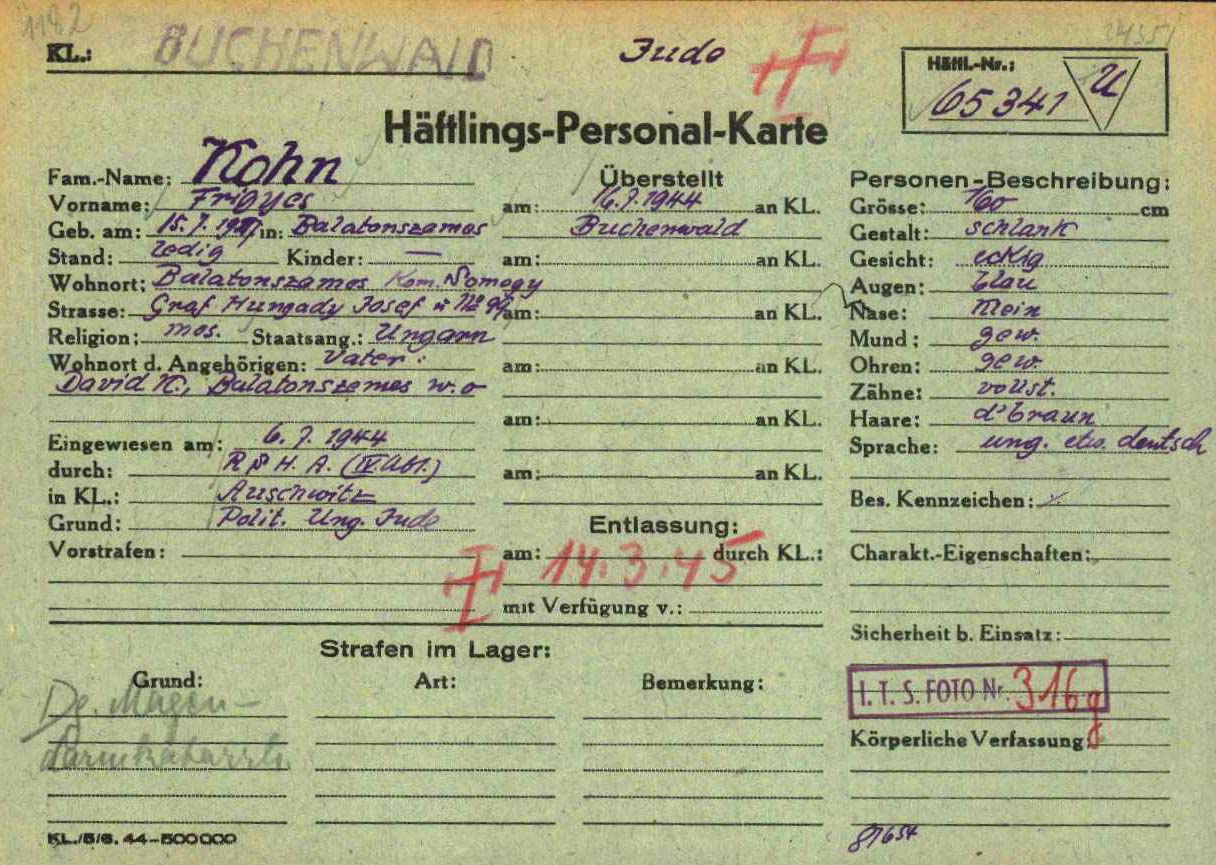 1182
KL.: BUCHENWALD Jude
Häftl.-Nr.: 65341 U
Häftlings-Personal-Karte
Fam.-Name: Kohn
Vorname: Frigyes
Geb. am: 15.7. in: Balatonszemes
Stand: Ledig Kinder: —
Wohnort: Balatonszemes Kom. Somogy
Strasse: Graf Hungady Josef u № 99
Religion: mos. Staatsang.: Ungarn
Wohnort d. Angehörigen: Vater:
David K., Balatonszemes w. o
Eingewiesen am: 6.7.1944
durch: R S H. A. (IV Abt.)
in KL.: Auschwitz
Grund: Polit. Ung. Jude
Vorstrafen:
Überstellt
am: 16.7.1944 an KL.
Buchenwald
am: an KL.
am: an KL.
am: an KL.
am: an KL.
am: an KL.
Entlassung:
am: 14.3.45 durch KL.:
mit Verfügung v.:
Personen-Beschreibung:
Grösse: 160 cm
Gestalt: schlank
Gesicht: eckig
Augen: blau
Nase: klein
Mund: gew.
Ohren: gew.
Zähne: vollst.
Haare: d'braun
Sprache: ung. etw. deutsch
Bes. Kennzeichen: /.
Charakt.-Eigenschaften:
Sicherheit b. Einsatz:
I. T. S. FOTO Nr. 316g
Körperliche Verfassung:
Strafen im Lager:
Grund: Art: Bemerkung:
Dg. Magen-
darmkatarrh
KL./5/6. 44–500000
81654